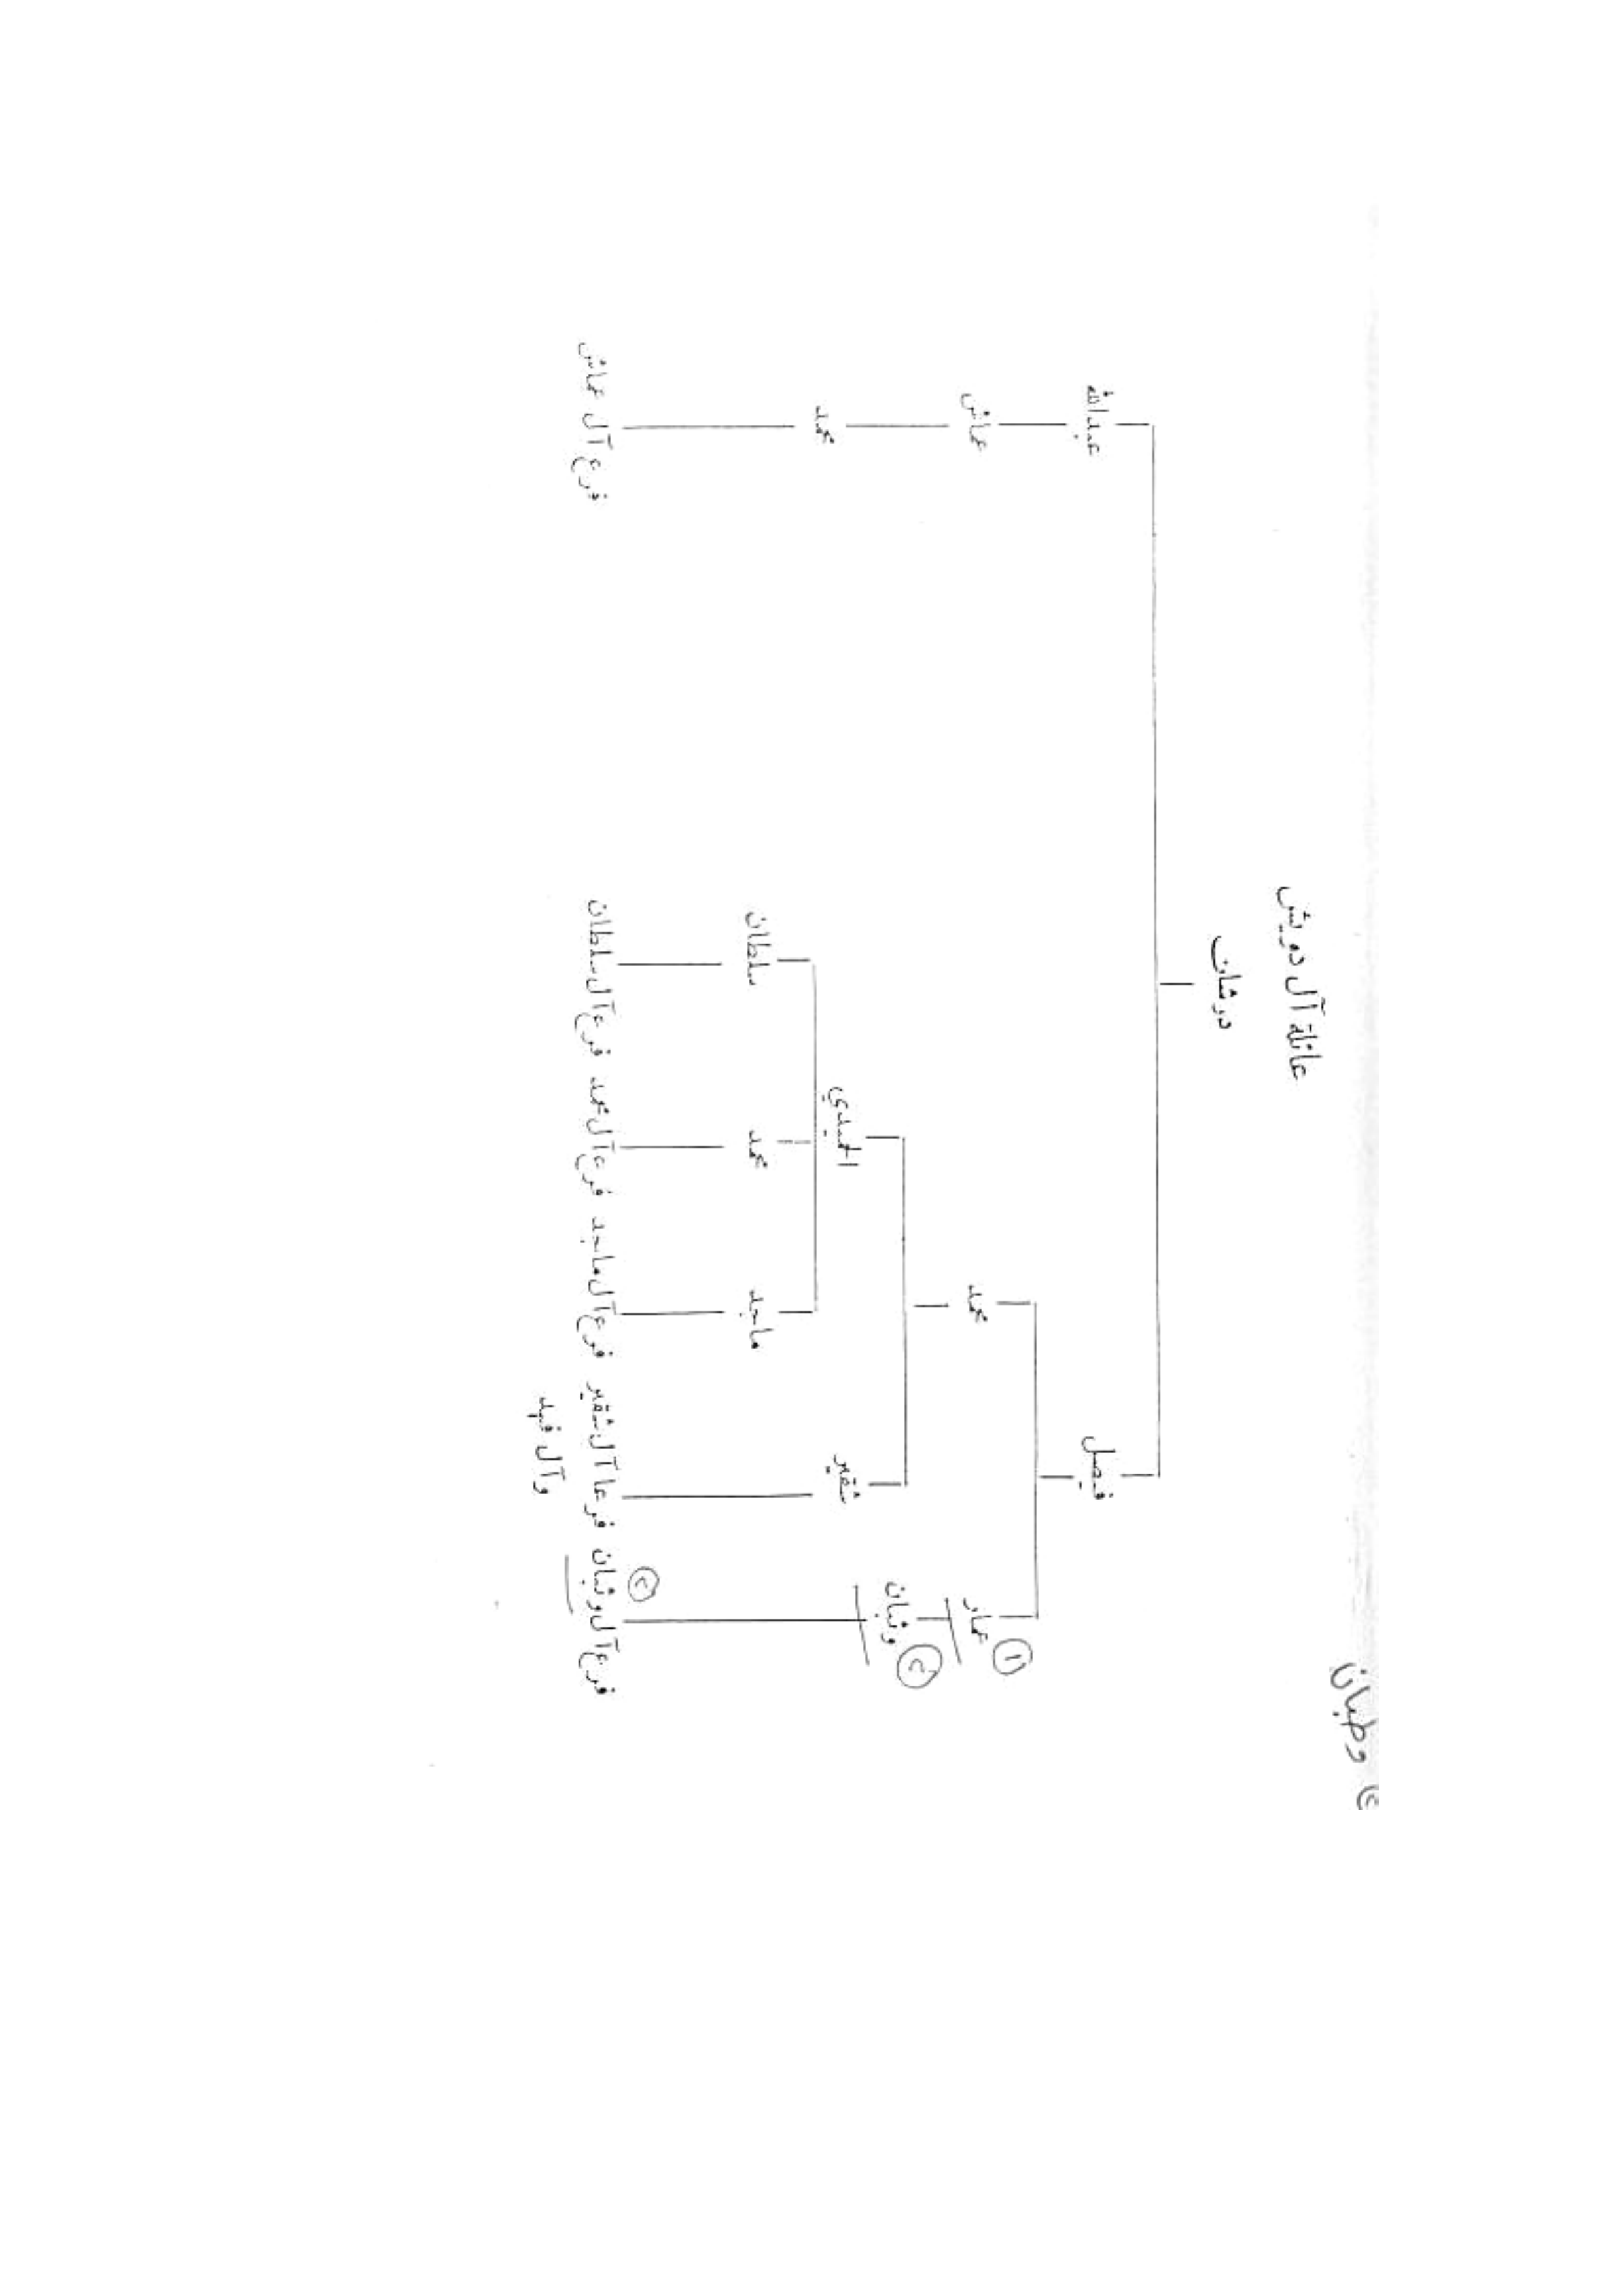 وطبان
عائلة آل دويش
فيصل عبدالله
١
عمار محمد عماش
وثبان
شقير الحميدي محمد
ماجد محمد سلطان
فرع آل وثبان فرعا آل شقير فرع آل ماجد فرع آل محمد فرع آل سلطان فرع آل عماش
وآل فهد